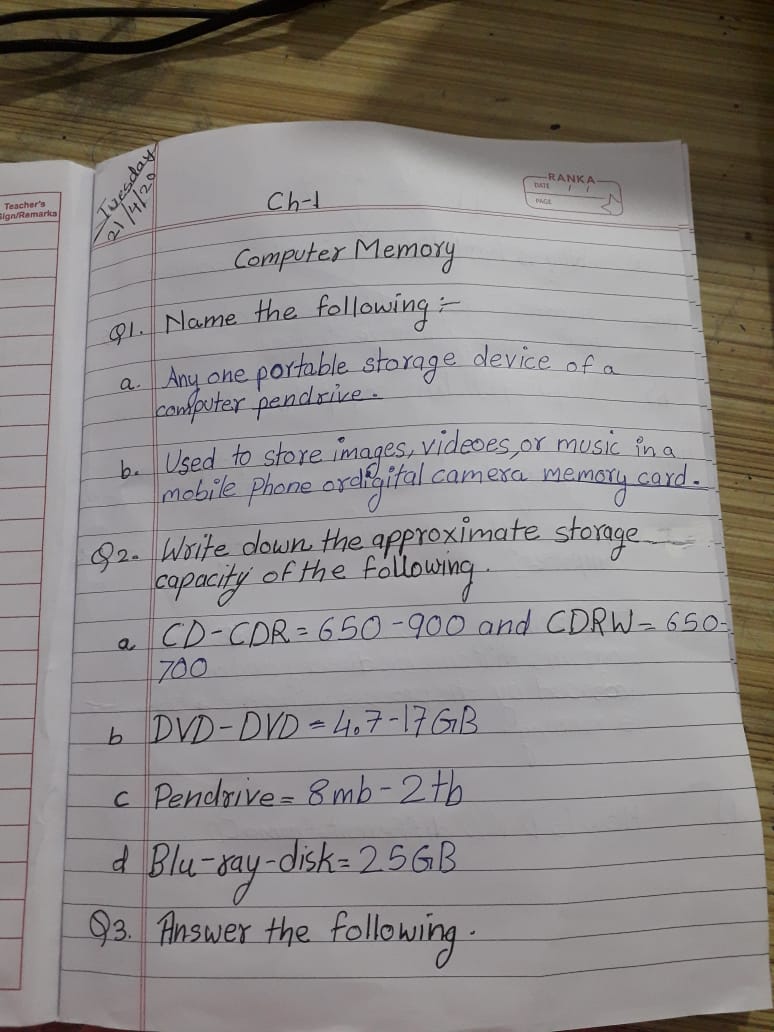 Teacher's
Sign/Remarks
Tuesday
21/4/20
Ch-1
RANKA
DATE / /
PAGE
Computer Memory
Q1. Name the following :-
a. Any one portable storage device of a
computer pendrive.
b. Used to store images, videoes, or music in a
mobile phone or digital camera memory card.
Q2. Write down the approximate storage
capacity of the following.
a CD-CDR = 650-900 and CDRW = 650-
700
b DVD-DVD = 4.7-17 GB
c Pendrive = 8mb-2tb
d Blu-ray-disk = 25GB
Q3. Answer the following.